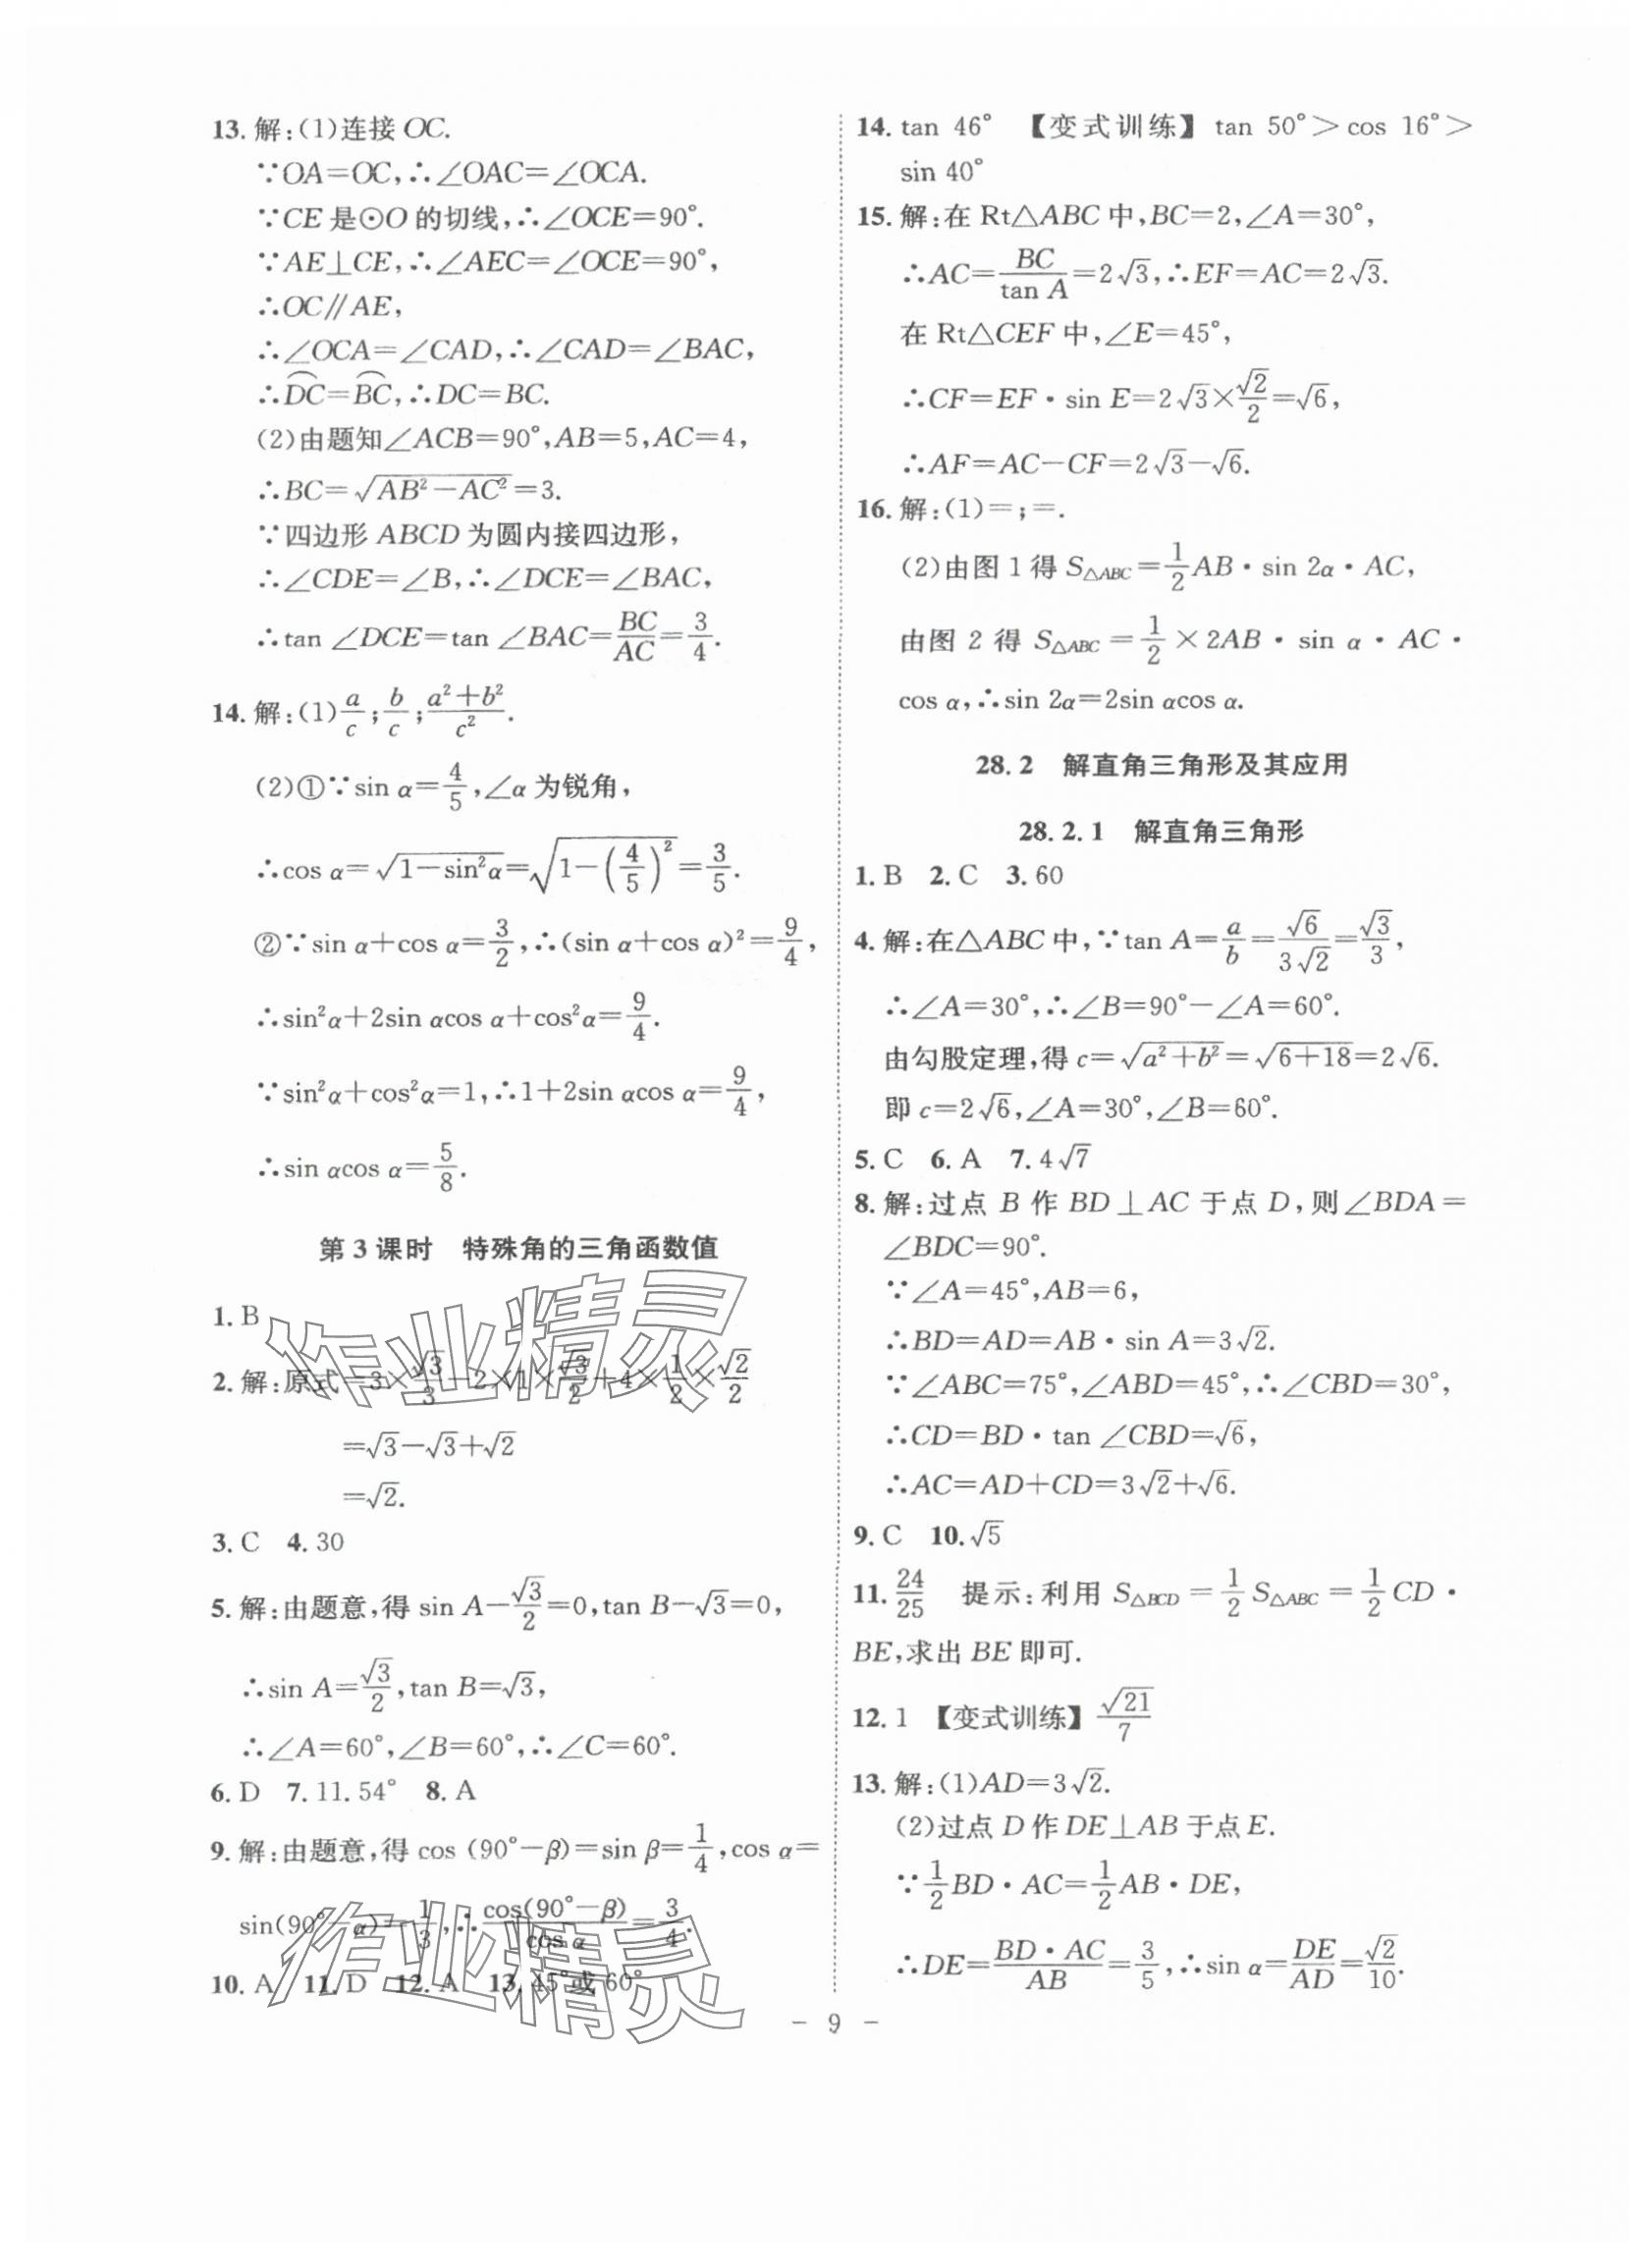 13. 解:(1)连接 OC.
∵OA=OC,∴∠OAC=∠OCA.
∵CE 是⊙O 的切线,∴∠OCE=90°.
∵AE⊥CE,∴∠AEC=∠OCE=90°,
∴OC∥AE,
∴∠OCA=∠CAD,∴∠CAD=∠BAC,
∴⌒DC=⌒BC,∴DC=BC.
(2)由题知∠ACB=90°,AB=5,AC=4,
∴BC=√(AB²-AC²)=3.
∵四边形 ABCD 为圆内接四边形,
∴∠CDE=∠B,∴∠DCE=∠BAC,
∴tan ∠DCE=tan ∠BAC=BC/AC=3/4.
14. 解:(1)a/c;b/c;(a²+b²)/c².
(2)①∵sin α=4/5,∠α 为锐角,
∴cos α=√(1-sin²α)=√(1-(4/5)²)=3/5.
②∵sin α+cos α=3/2,∴(sin α+cos α)²=9/4,
∴sin²α+2sin αcos α+cos²α=9/4.
∵sin²α+cos²α=1,∴1+2sin αcos α=9/4,
∴sin αcos α=5/8.
第 3 课时 特殊角的三角函数值
1. B
2. 解:原式=3×√3/3-2×1×√3/2+4×1/2×√2/2
=√3-√3+√2
=√2.
3. C 4. 30
5. 解:由题意,得 sin A-√3/2=0,tan B-√3=0,
∴sin A=√3/2,tan B=√3,
∴∠A=60°,∠B=60°,∴∠C=60°.
6. D 7. 11.54° 8. A
9. 解:由题意,得 cos (90°-β)=sin β=1/4,cos α=
sin(90°-α)=1/3,∴cos(90°-β)/cos α=3/4.
10. A 11. D 12. A 13. 45°或 60°
14. tan 46° 【变式训练】 tan 50°>cos 16°>
sin 40°
15. 解:在 Rt△ABC 中,BC=2,∠A=30°,
∴AC=BC/tan A=2√3,∴EF=AC=2√3.
在 Rt△CEF 中,∠E=45°,
∴CF=EF·sin E=2√3×√2/2=√6,
∴AF=AC-CF=2√3-√6.
16. 解:(1)=;=.
(2)由图 1 得 S△ABC=1/2AB·sin 2α·AC,
由图 2 得 S△ABC=1/2×2AB·sin α·AC·
cos α,∴sin 2α=2sin αcos α.
28.2 解直角三角形及其应用
28.2.1 解直角三角形
1. B 2. C 3. 60
4. 解:在△ABC 中,∵tan A=a/b=√6/(3√2)=√3/3,
∴∠A=30°,∴∠B=90°-∠A=60°.
由勾股定理,得 c=√(a²+b²)=√(6+18)=2√6.
即 c=2√6,∠A=30°,∠B=60°.
5. C 6. A 7. 4√7
8. 解:过点 B 作 BD⊥AC 于点 D,则∠BDA=
∠BDC=90°.
∵∠A=45°,AB=6,
∴BD=AD=AB·sin A=3√2.
∵∠ABC=75°,∠ABD=45°,∴∠CBD=30°,
∴CD=BD·tan ∠CBD=√6,
∴AC=AD+CD=3√2+√6.
9. C 10. √5
11. 24/25 提示:利用 S△BCD=1/2 S△ABC=1/2 CD·
BE,求出 BE 即可.
12. 1 【变式训练】√21/7
13. 解:(1)AD=3√2.
(2)过点 D 作 DE⊥AB 于点 E.
∵1/2BD·AC=1/2AB·DE,
∴DE=BD·AC/AB=3/5,∴sin α=DE/AD=√2/10.
- 9 -
作业精灵
作业精灵